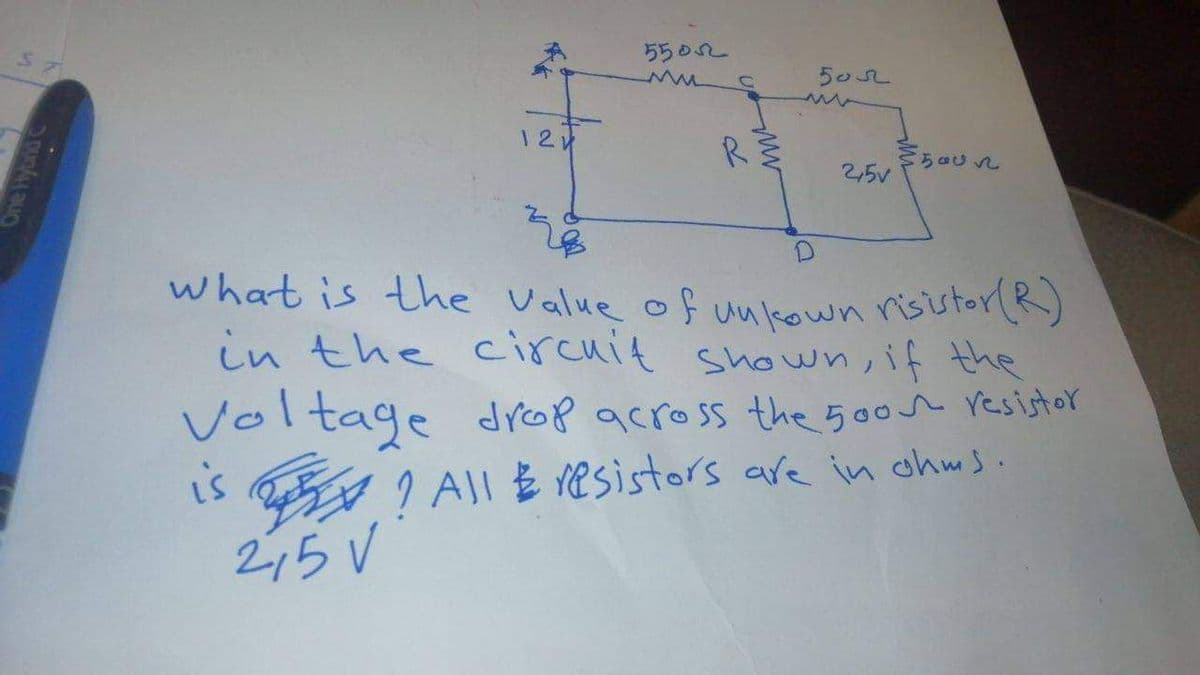 550Ω
50Ω
A
C
12V
R
2,5V
500Ω
B
D
what is the value of unkown risistor(R)
in the circuit shown, if the
voltage drop across the 500Ω resistor
is ? All resistors are in ohms.
2,5 V
One Hybrid C